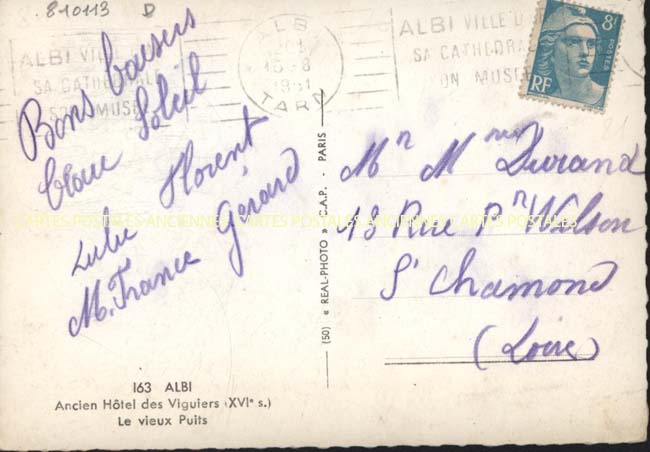 810113 D
ALBI VILLE D
SA CATHEDRALE
SON MUSEE
ALBI
1951
TARN
ALBI VILLE D
SA CATHEDRA
ON MUSE
8F
POSTES
RF
Bons baisers
beau Soleil
Lulu Florent
M. France Gérard
CARTES-POSTALES-ANCIENNES CARTES POSTALES
(50) « REAL-PHOTO » C.A.P. - PARIS
Mr Mme Durand
18 Rue Pnt Wilson
St Chamond
(Loire)
163 ALBI
Ancien Hôtel des Viguiers (XVIe s.)
Le vieux Puits